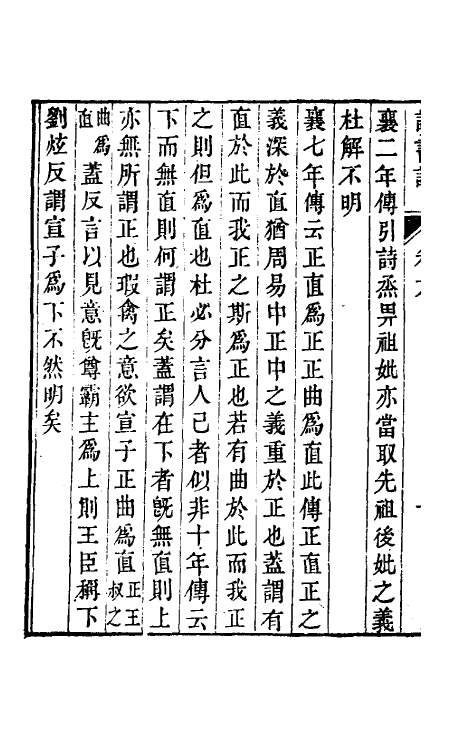 襄二年傳引詩烝畀祖妣亦當取先祖後妣之義
杜解不明
襄七年傳云正直爲正正曲爲直此傳正直正之
義深於直猶周易中正中之義重於正也蓋謂有
直於此而我正之斯爲正也若有曲於此而我正
之則但爲直也杜必分言人己者似非十年傳云
下而無直則何謂正矣蓋謂在下者旣無直則上
亦無所謂正也瑕禽之意欲宣子正曲爲直正王叔之
曲爲直蓋反言以見意旣尊霸主爲上則王臣稱下
劉炫反謂宣子爲下不然明矣